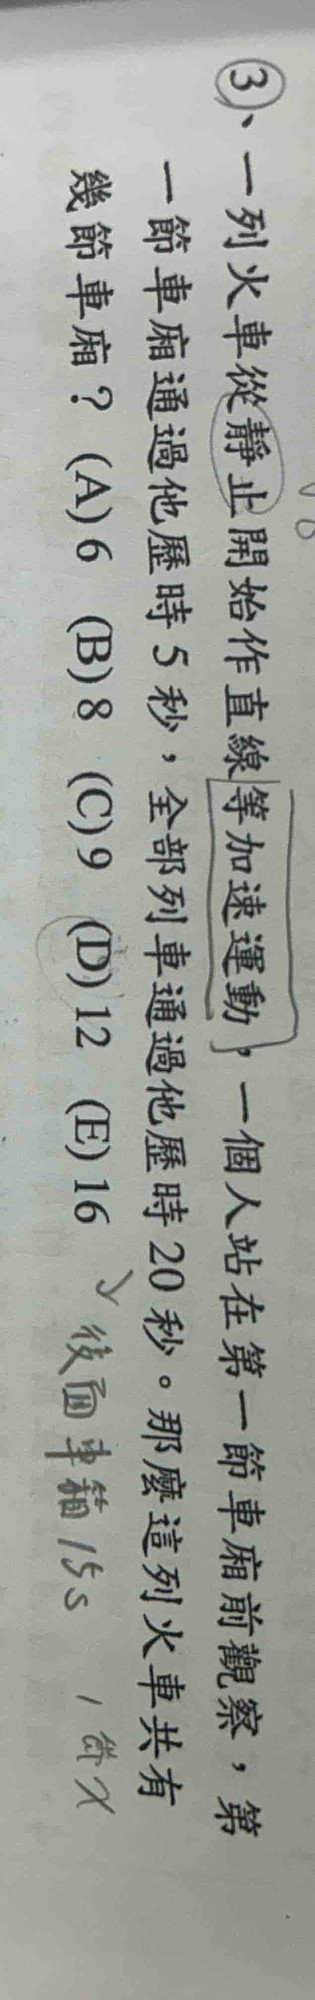 ③、一列火車從靜止開始作直線等加速運動，一個人站在第一節車廂前觀察，第
一節車廂通過他歷時5秒，全部列車通過他歷時20秒。那麼這列火車共有
幾節車廂？ (A) 6 (B) 8 (C) 9 (D) 12 (E) 16
後面車箱 15s
1節 x